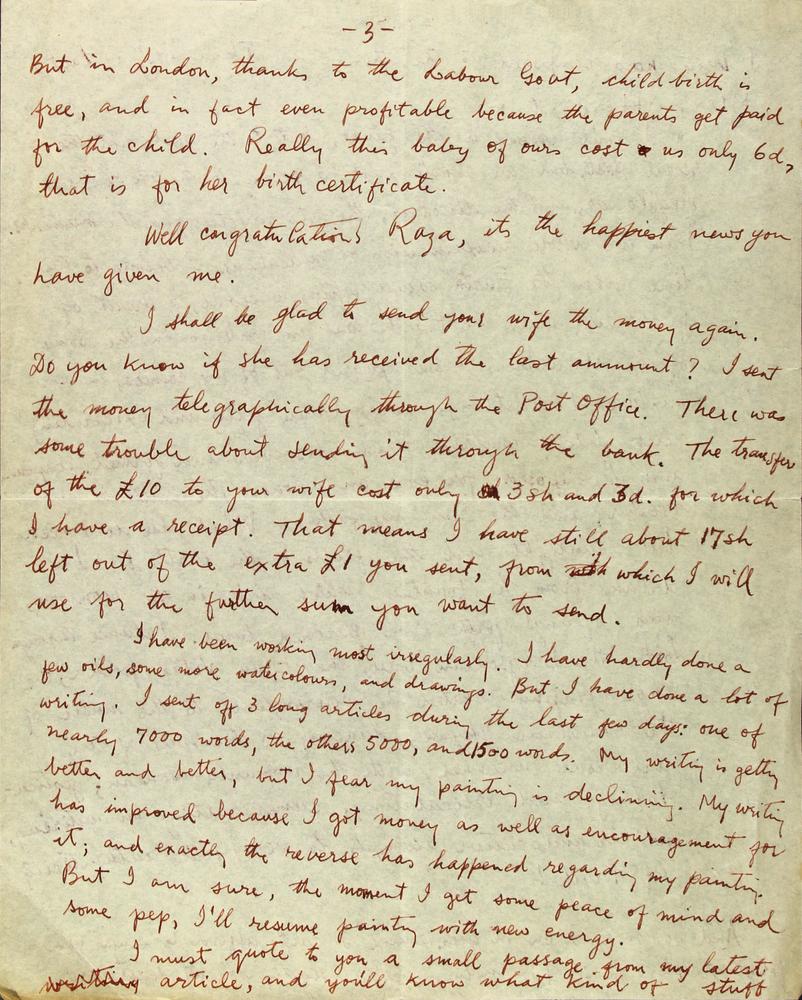 -3-
But in London, thanks to the Labour Govt, childbirth is
free, and in fact even profitable because the parents get paid
for the child. Really this baby of ours cost us only 6d,
that is for her birth certificate.
Well congratulations Raza, its the happiest news you
have given me.
I shall be glad to send your wife the money again.
Do you know if she has received the last ammount? I sent
the money telegraphically through the Post Office. There was
some trouble about sending it through the bank. The transfer
of the £10 to your wife cost only 3sh and 3d. for which
I have a receipt. That means I have still about 17sh
left out of the extra £1 you sent, from which I will
use for the further sum you want to send.
I have been working most irregularly. I have hardly done a
few oils, some more watercolours, and drawings. But I have done a lot of
writing. I sent off 3 long articles during the last few days: one of
nearly 7000 words, the others 5000, and 1500 words. My writing is getting
better and better, but I fear my painting is declining. My writing
has improved because I got money as well as encouragement for
it; and exactly the reverse has happened regarding my painting.
But I am sure, the moment I get some peace of mind and
some pep, I'll resume painting with new energy.
I must quote to you a small passage from my latest
article, and you'll know what kind of stuff